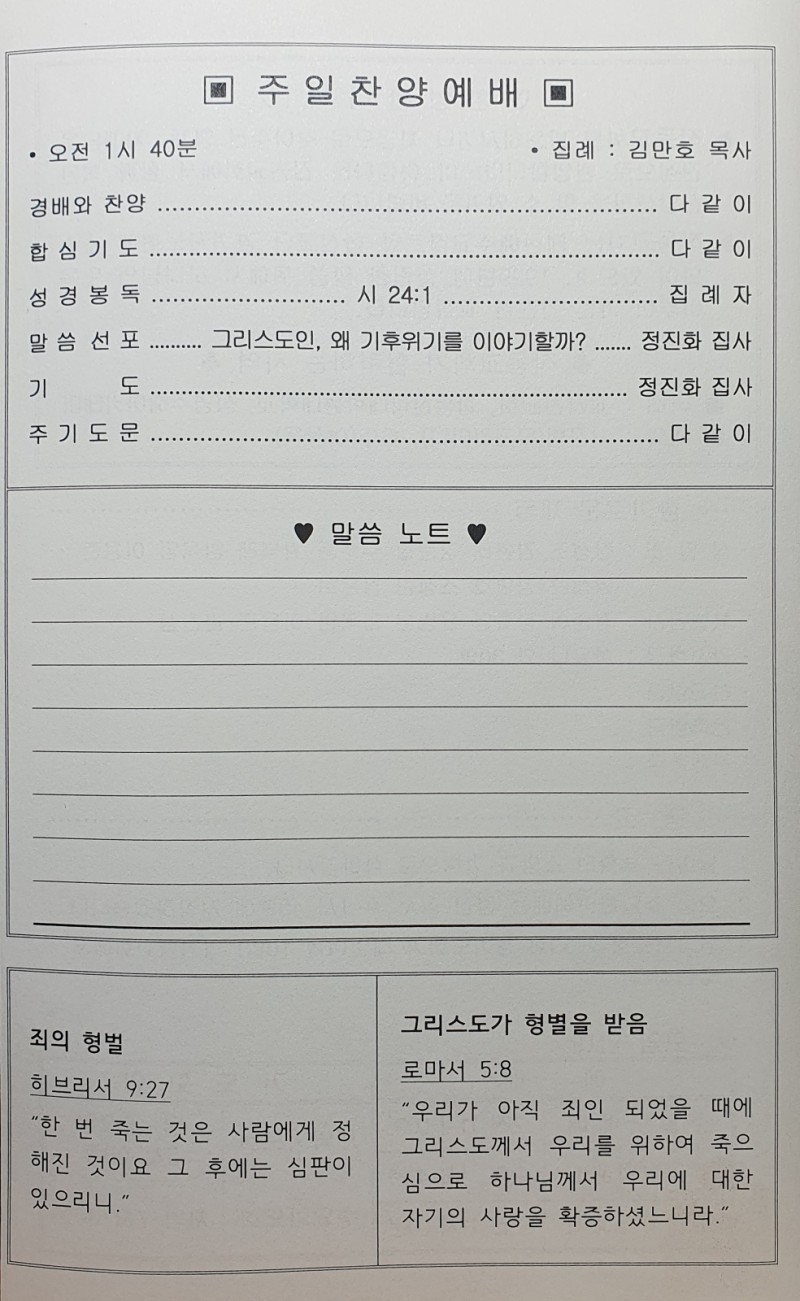 ▣ 주 일 찬 양 예 배 ▣
• 오전 1시 40분 • 집례 : 김만호 목사
경배와 찬양 ........................................ 다 같 이
합 심 기 도 ........................................ 다 같 이
성 경 봉 독 .................... 시 24:1 .................... 집 례 자
말 씀 선 포 .......... 그리스도인, 왜 기후위기를 이야기할까? ....... 정진화 집사
기 도 ........................................ 정진화 집사
주 기 도 문 ........................................ 다 같 이
♥ 말씀 노트 ♥
죄의 형벌
히브리서 9:27
"한 번 죽는 것은 사람에게 정
해진 것이요 그 후에는 심판이
있으리니."
그리스도가 형별을 받음
로마서 5:8
"우리가 아직 죄인 되었을 때에
그리스도께서 우리를 위하여 죽으
심으로 하나님께서 우리에 대한
자기의 사랑을 확증하셨느니라."